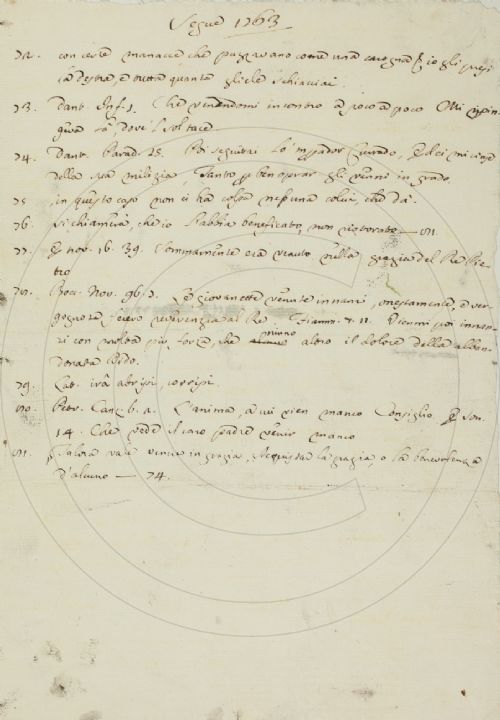 Segue 1763
72. con certe manacce che puzzavano come una carogna io gli presi
la destra, e tutta quanta gliele schiacciai.
73. Dant. Inf. 1. Che venendomi incontro a poco a poco Mi ripin-
geva là dove 'l Sol tace
74. Dant. Parad. 15. Poi seguitai lo 'mperador Currado, Ed ei mi cinse
della sua milizia, Tanto per ben oprar gli venni in grado
75. in questo caso non ci ha colpa nessuna colui, che dà
76. richiamerà, che io l'abbia beneficato, non ristorato — 81.
77. E nov. 16. 39. Sommamente era venuto nella grazia del Re Pie-
tro
78. Bocc. Nov. 96. Le giovanette venute innanzi, onestamente, e ver-
gognose fecero reverenzia al Re Fiamm. 7. 11. Viemmi poi innan-
zi con molta più forza, che
niuno
altro il dolore della abban-
donata Dido.
79. Lat. irâ abripi, corripi.
80. Petr. Canz. 6. 2. L'anima, a cui vien manco Consiglio, E Son.
14. Che vede il caro padre venir manco
81. Talora vale venire in grazia, Acquistar la grazia, o la benevolenza
d'alcuno — 74.